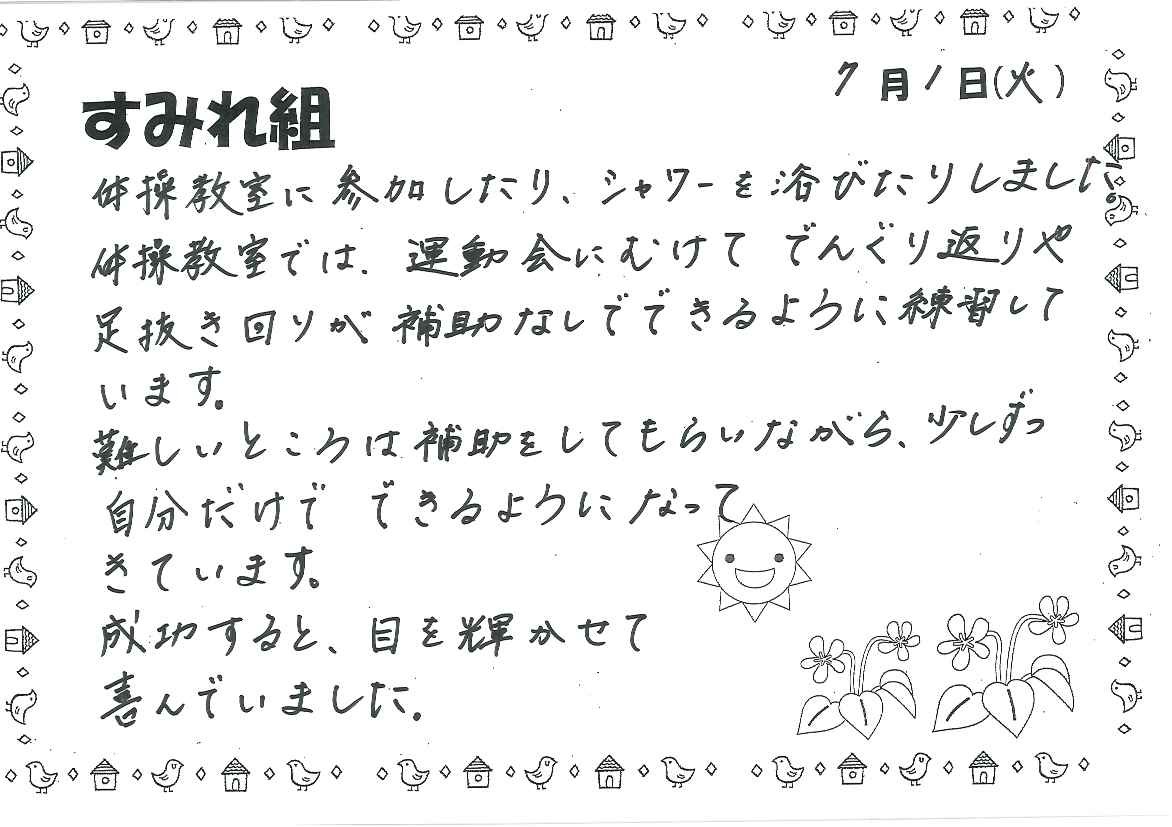 7月1日(火)
すみれ組
体操教室に参加したり、シャワーを浴びたりしました。
体操教室では、運動会にむけて でんぐり返りや
足抜き回りが補助なしでできるように練習して
います。
難しいところは補助をしてもらいながら、少しずつ
自分だけで できるようになって
きています。
成功すると、目を輝かせて
喜んでいました。